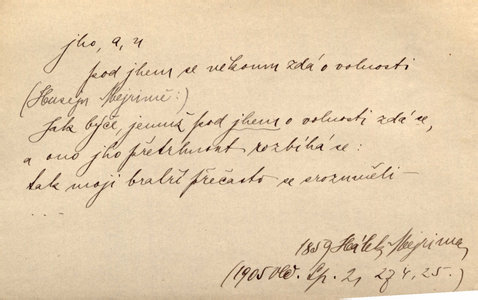 jho, a, n
pod jhem se někomu zdá o volnosti
(Husejn Mejrimě:)
Jak býče, jemuž pod jhem o volnosti zdá se,
a ono jho přetrhnout rozbíhá se:
tak moji bratří přečasto se srozuměli –
....
1859 Hálek, Mejrima
(1905 Ott. Sp. 2, 274, 25.)